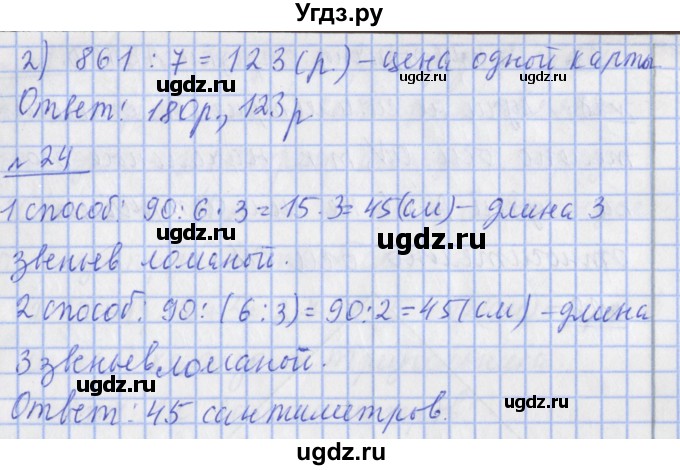 Угдз.ру
2) 861 : 7 = 123 (р.) – цена одной карты
Ответ: 180 р., 123 р
№ 24
1 способ: 90 : 6 · 3 = 15 · 3 = 45 (см) – длина 3
звеньев ломаной.
2 способ: 90 : (6 : 3) = 90 : 2 = 45 (см) – длина
3 звеньев ломаной.
Ответ: 45 сантиметров.
ugdz.ru
ugdz.ru
ugdz.ru
ugdz.ru
ugdz.ru
ugdz.ru
ugdz.ru
ugdz.ru
ugdz.ru
ugdz.ru